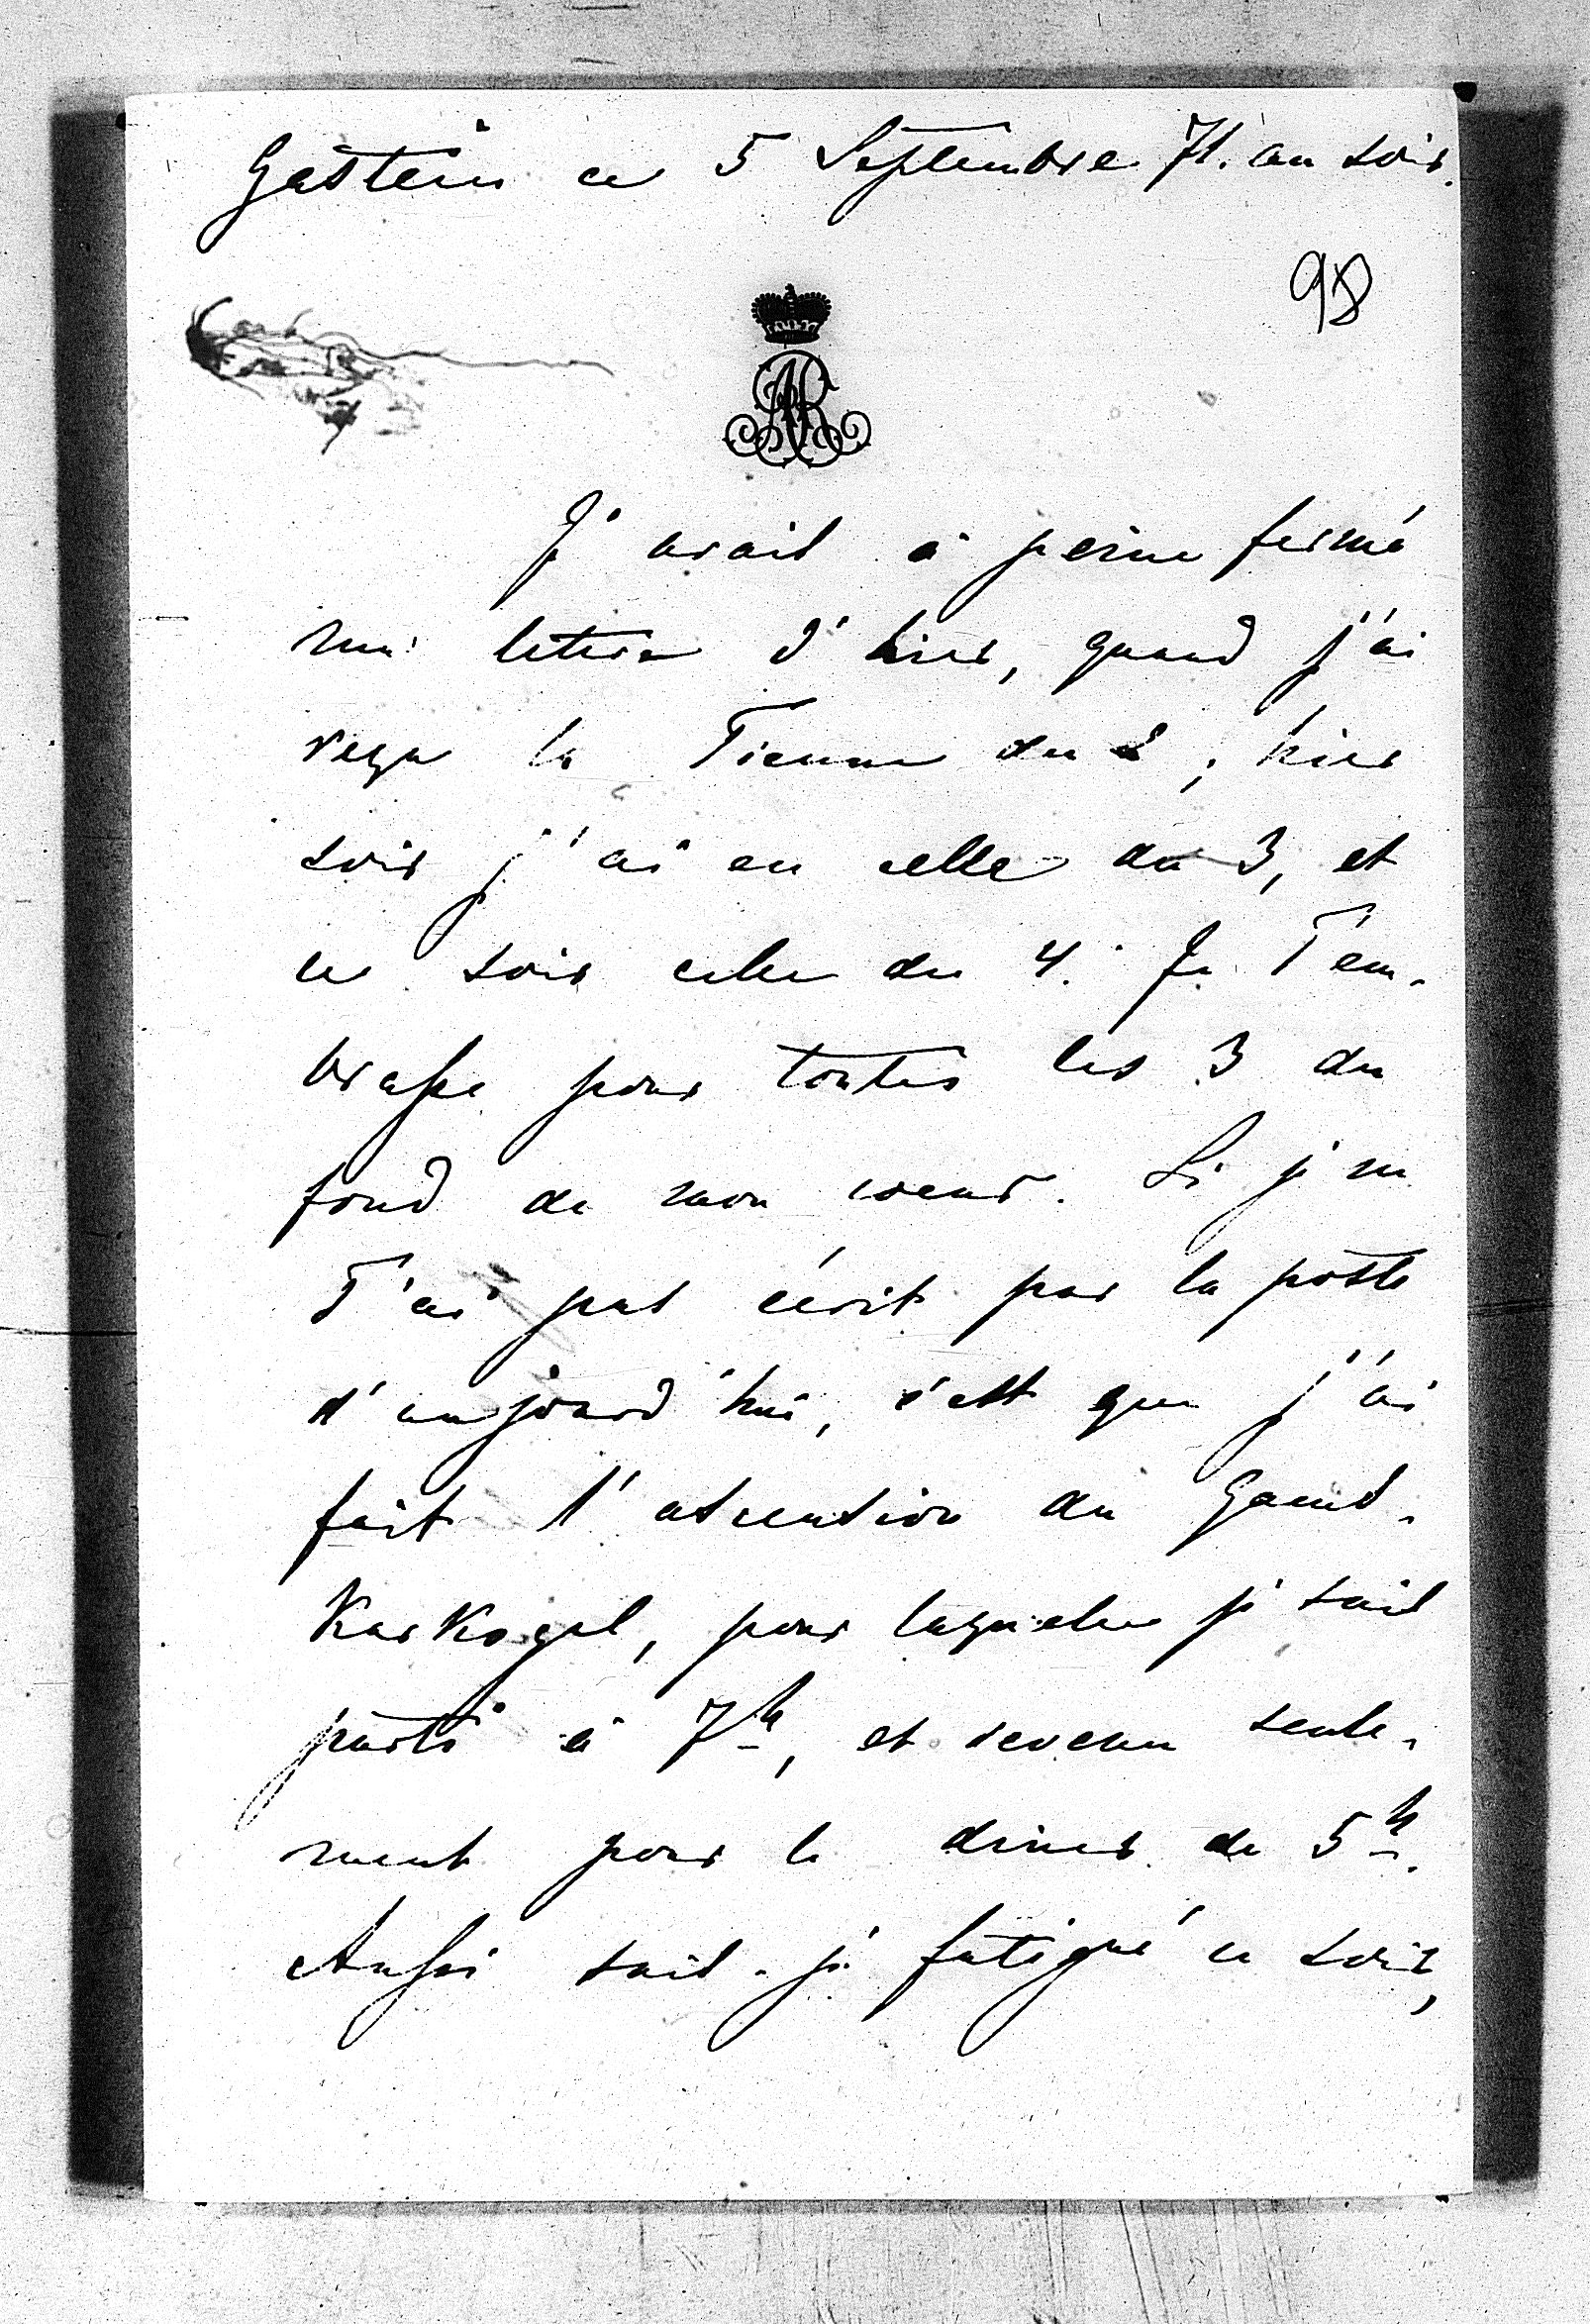 Gastein ce 5 Septembre 71. au soir.
98
J'avais à peine fermé
ma lettre d'hier, quand j'ai
reçu la Tienne du 2, hier
soir j'ai eu celle du 3, et
ce soir celle du 4. Je T'em-
brasse pour toutes les 3 du
fond de mon coeur. Si je ne
T'ai pas écrit par la poste
d'aujourd'hui, c'est que j'ai
fait l'ascension du Gams-
Karkogel, pour laquelle je suis
parti à 7h, et revenu seule-
ment pour le diner de 5h.
Aussi suis-je fatigué ce soir,